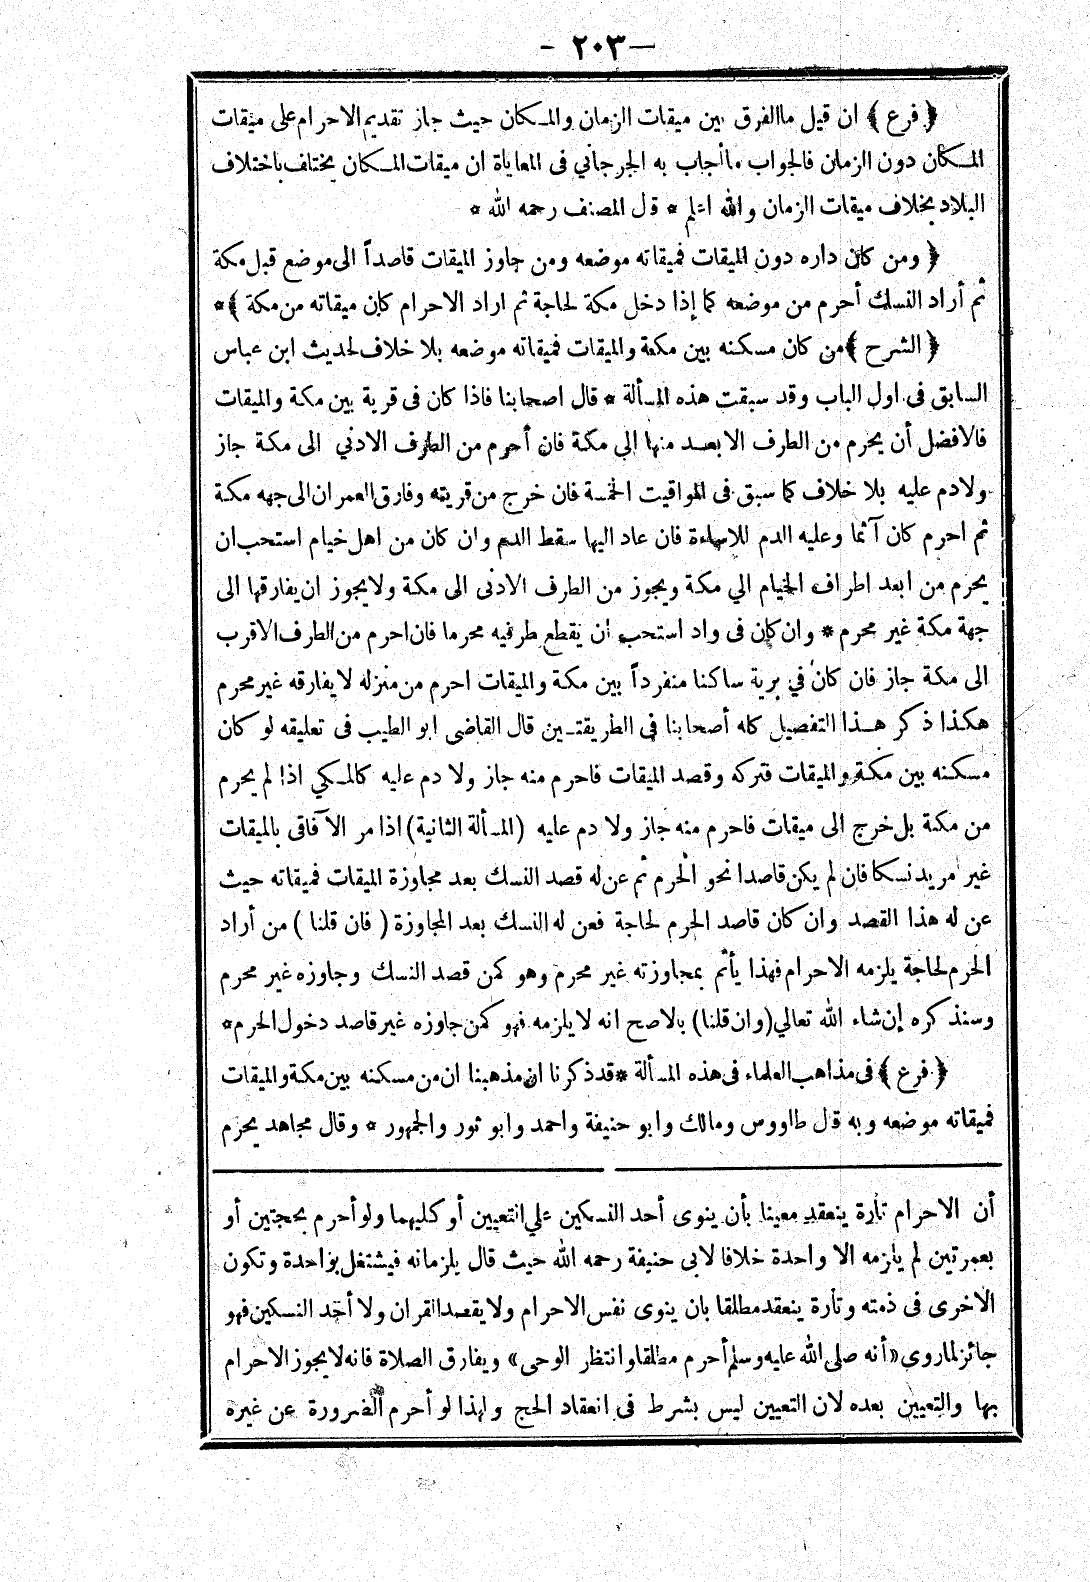 — ٢٠٣ —
﴿ فرع ﴾ ان قيل ما الفرق بين ميقات الزمان والمكان حيث جاز تقديم الاحرام على ميقات
المكان دون الزمان فالجواب ما أجاب به الجرجاني فى المعاياة ان ميقات المكان يختلف باختلاف
البلاد بخلاف ميقات الزمان والله اعلم * قال المصنف رحمه الله *
﴿ ومن كان داره دون الميقات فميقاته موضعه ومن جاوز الميقات قاصداً الى موضع قبل مكة
ثم أراد النسك أحرم من موضعه كما إذا دخل مكة لحاجة ثم اراد الاحرام كان ميقاته من مكة ﴾ *
﴿ الشرح ﴾ من كان مسكنه بين مكة والميقات فميقاته موضعه بلا خلاف لحديث ابن عباس
السابق فى اول الباب وقد سبقت هذه المسألة * قال اصحابنا فاذا كان فى قرية بين مكة والميقات
فالافضل أن يحرم من الطرف الابعد منها الي مكة فان أحرم من الطرف الادني الى مكة جاز
ولادم عليه بلا خلاف كما سبق فى المواقيت الخمسة فان خرج من قريته وفارق العمران الى جهه مكة
ثم احرم كان آثما وعليه الدم للاساءة فان عاد اليها سقط الدم وان كان من اهل خيام استحب ان
يحرم من ابعد اطراف الخيام الي مكة ويجوز من الطرف الادنى الى مكة ولا يجوز ان يفارقها الى
جهة مكة غير محرم * وان كان فى واد استحب ان يقطع طرفيه محرما فان احرم من الطرف الاقرب
الى مكة جاز فان كان في برية ساكنا منفرداً بين مكة والميقات احرم من منزله لا يفارقه غير محرم
هكذا ذكر هذا التفصيل كله أصحابنا فى الطريقتين قال القاضى ابو الطيب فى تعليقه لو كان
مسكنه بين مكة والميقات فتركه وقصد الميقات فاحرم منه جاز ولا دم عليه كالمكي اذا لم يحرم
من مكة بل خرج الى ميقات فاحرم منه جاز ولا دم عليه (المسألة الثانية) اذا مر الآفاقى بالميقات
غير مريد نسكا فان لم يكن قاصدا نحو الحرم ثم عن له قصد النسك بعد مجاوزة الميقات فميقاته حيث
عن له هذا القصد وان كان قاصد الحرم لحاجة فعن له النسك بعد المجاوزة ( فان قلنا ) من أراد
الحرم لحاجة يلزمه الاحرام فهذا يأثم بمجاوزته غير محرم وهو كمن قصد النسك وجاوزه غير محرم
وسنذكره إن شاء الله تعالي (وان قلنا) بالاصح انه لا يلزمه فهو كمن جاوزه غير قاصد دخول الحرم *
﴿ فرع ﴾ فى مذاهب العلماء فى هذه المسألة * قد ذكرنا ان مذهبنا ان من مسكنه بين مكة والميقات
فميقاته موضعه وبه قال طاووس ومالك وابو حنيفة واحمد وابو ثور والجمهور * وقال مجاهد يحرم
أن الاحرام تارة ينعقد معينا بأن ينوى أحد النسكين علي التعيين أو كليهما ولو أحرم بحجتين أو
بعمرتين لم يلزمه الا واحدة خلافا لابى حنيفة رحمه الله حيث قال يلزمانه فيشتغل بواحدة وتكون
الاخرى فى ذمته وتارة ينعقد مطلقا بان ينوى نفس الاحرام ولا يقصد القران ولا أحد النسكين فهو
جائز لما روي «أنه صلى الله عليه وسلم أحرم مطلقا وانتظر الوحى» ويفارق الصلاة فانه لا يجوز الاحرام
بها والتعيين بعده لان التعيين ليس بشرط فى انعقاد الحج ولهذا لو أحرم الضرورة عن غيره